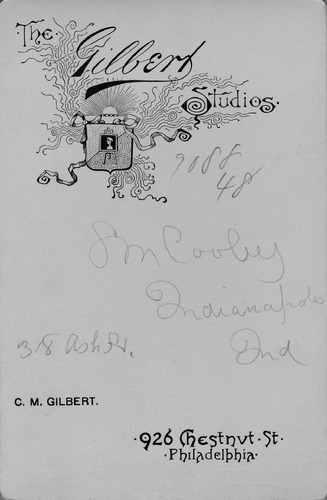 The
Gilbert
Studios.
7088
48
S M Cooley
Indianapolis
318 Ash St.
Ind
C. M. GILBERT.
·926 Chestnut·St·
·Philadelphia·